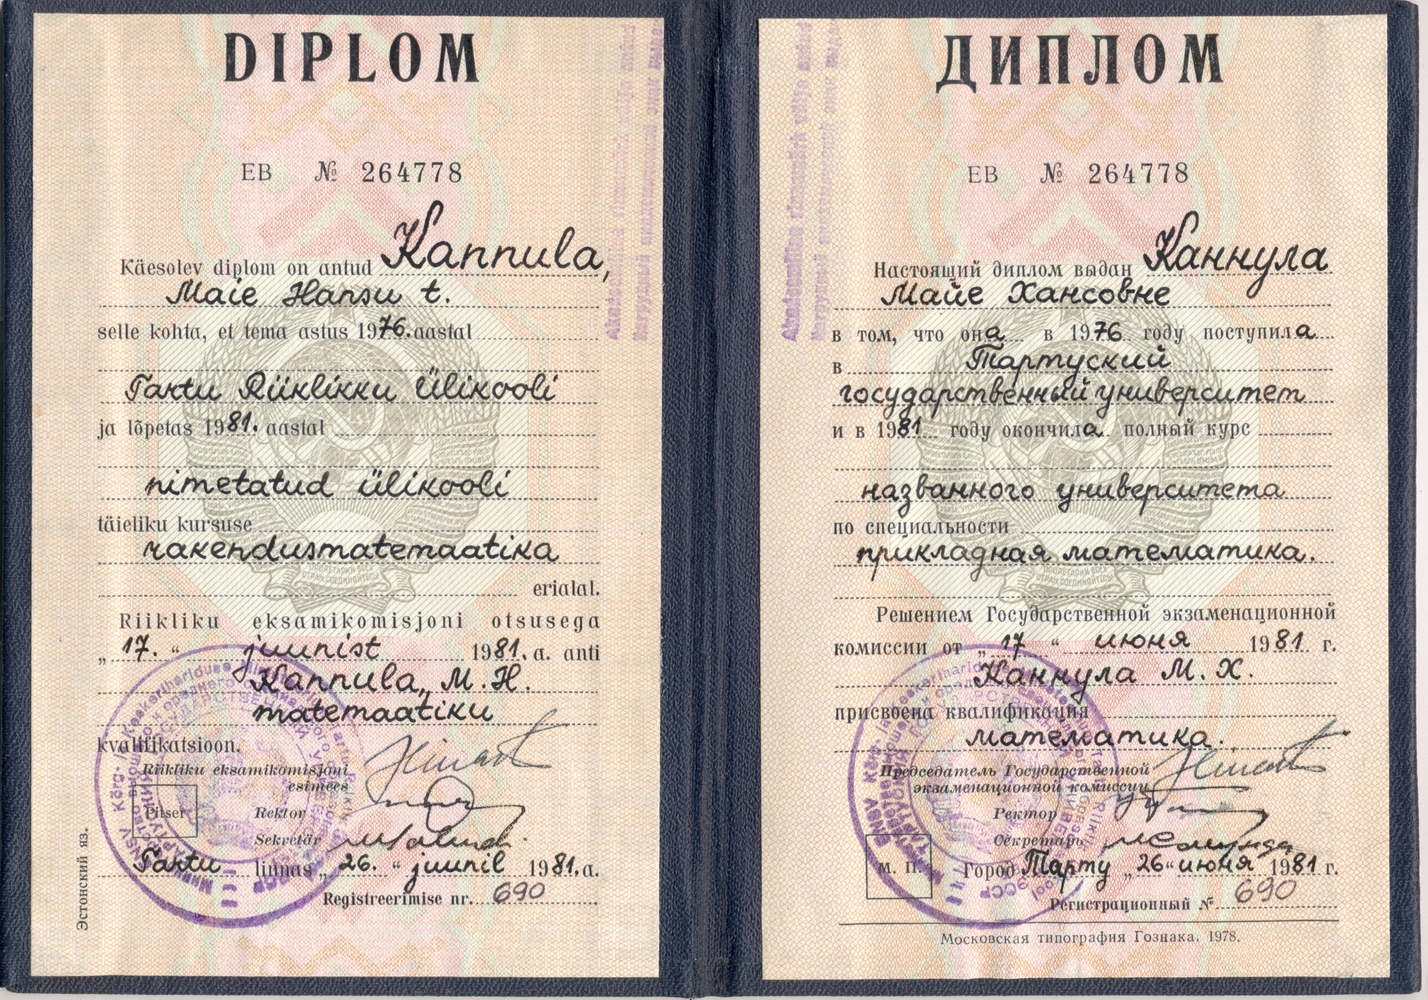 DIPLOM
ЕВ № 264778
Käesolev diplom on antud Kannula,
Maie Hansu t.
selle kohta, et tema astus 1976. aastal
Tartu Riiklikku Ülikooli
ja lõpetas 1981. aastal
nimetatud ülikooli
täieliku kursuse
rakendusmatemaatika
erialal.
Riikliku eksamikomisjoni otsusega
„ 17. “ juunist 1981. a. anti
Kannula, M. H.
matemaatiku
kvalifikatsioon.
Riikliku eksamikomisjoni
esimees
Pitser
Rektor
Sekretär
Tartu linnas „ 26. “ juunil 1981. a.
Registreerimise nr. 690
Эстонский яз.
ДИПЛОМ
ЕВ № 264778
Настоящий диплом выдан Каннула
Майе Хансовне
в том, что она в 1976 году поступила
в Тартуский
государственный университет
и в 1981 году окончила полный курс
названного университета
по специальности
прикладная математика.
Решением Государственной экзаменационной
комиссии от „ 17 “ июня 1981 г.
Каннула М. Х.
присвоена квалификация
математика.
Председатель Государственной
экзаменационной комиссии
Ректор
Секретарь
М. П.
Город Тарту „ 26 “ июня 1981 г.
Регистрационный № 690
Московская типография Гознака. 1978.